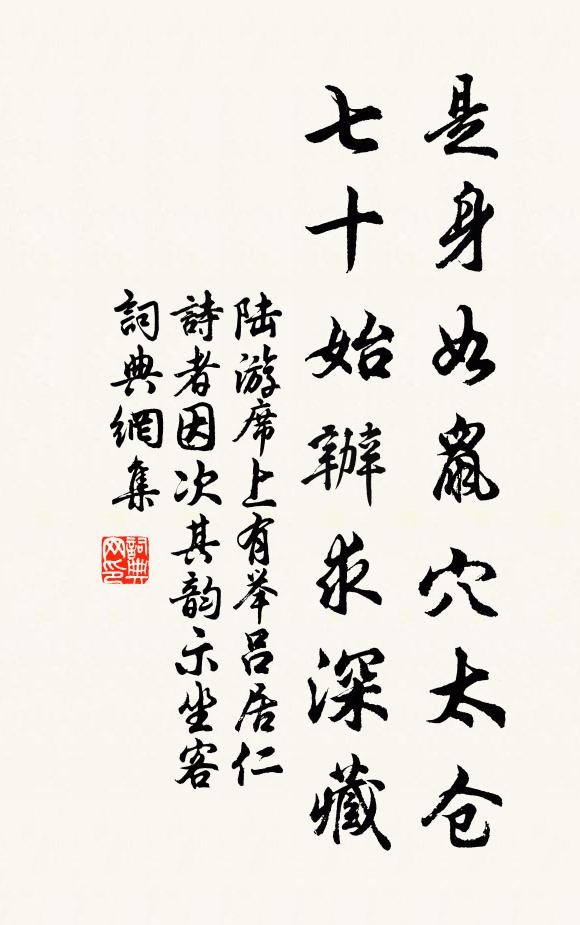 是身如鼠穴太仓
七十始辦求深藏
陆游席上有举吕居仁
詩者因次其韵示坐客
詞典網集
詞典
网印